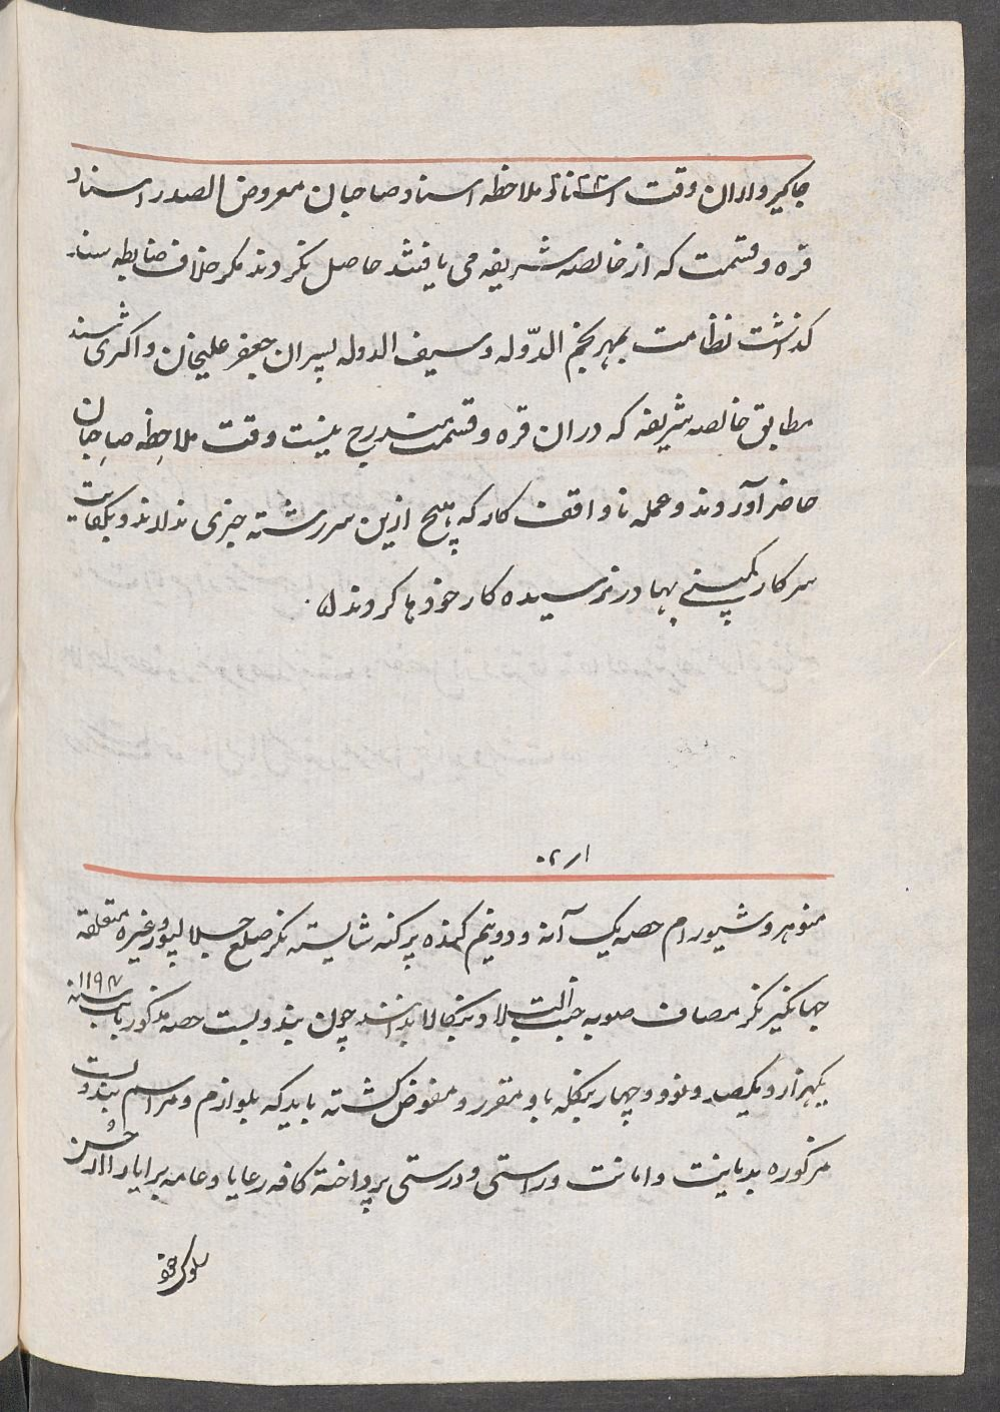 جاگیرداران وقت ملاحظه اسناد صاحبان معروض الصدر اسناد
قره و قسمت که از خالصه شریفه می یافتند حاصل نکردند مگر خلاف ضابطه
گذاشت نظامت بمهر نجم الدّوله و سیف الدوله پسران جعفر علیخان و اکثری سند
مطابق خالصه شریفه که دران قره و قسمت مندرج نیست وقت ملاحظه صاحبان
حاضر آوردند و عمله ناواقف کار که هیچ ازین سررشته چیزی ندارند و بکفایت
سرکار کمپنی بهادر نرسیده کار خودها کردند ۵
منوهر و شیورام حصه یک آنه و دو نیم گنده پرگنه شایسته نگر ضلع جلالپور وغیره متعلقه
جهانگیر نگر مضاف صوبه جنت البلاد بنگاله بدانند چون بندوبست حصه مذکور بابت سنه ۱۱۹۴
یکهزار و یکصد و نود و چهار بنگله باو مقرر و مفوض گشته باید که بلوازم و مراسم بندوبست
مذکوره بدیانت و امانت و راستی و درستی پرداخته کافه رعایا و عامه برایا را از حُسن
سلوک خود